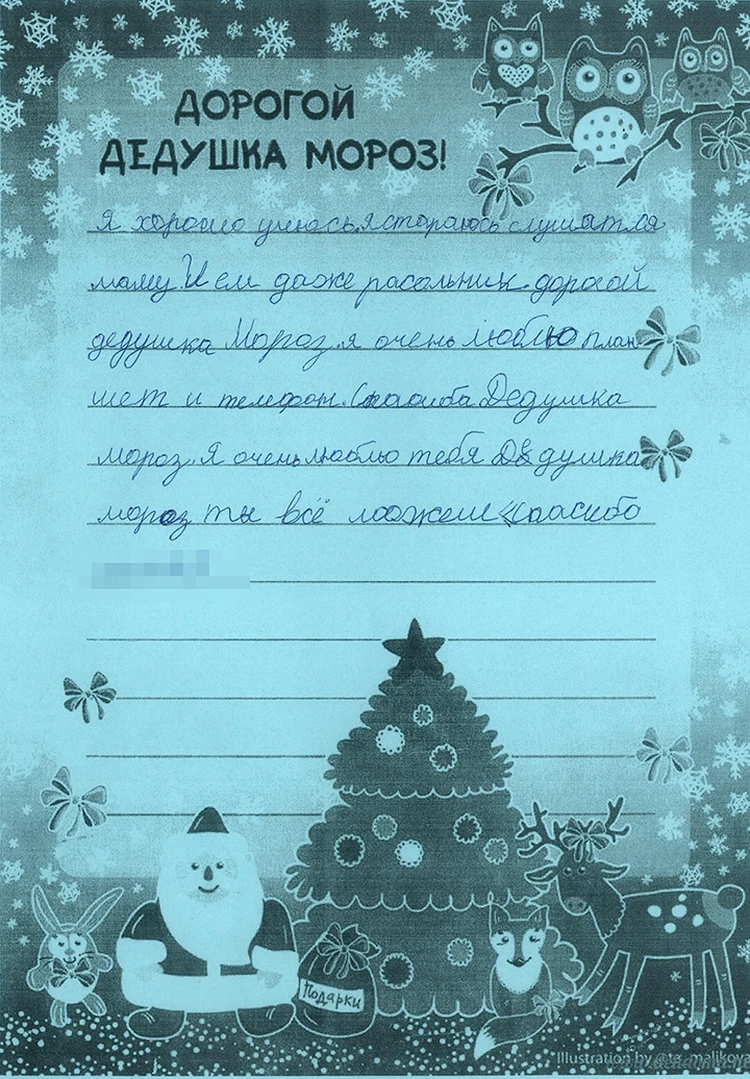 ДОРОГОЙ
ДЕДУШКА МОРОЗ!
Я хорошо учюсь.я стараюсь слушатля
маму.И ем даже расольник.дорогой
дедушка Мороз.я очень люблю план-
шет и телефон.Спасиба Дедушка
мороз.Я очень люблю тебя Дедушка
мороз ты всё можеш спасибо
Подарки
Illustration by @ta_malikova